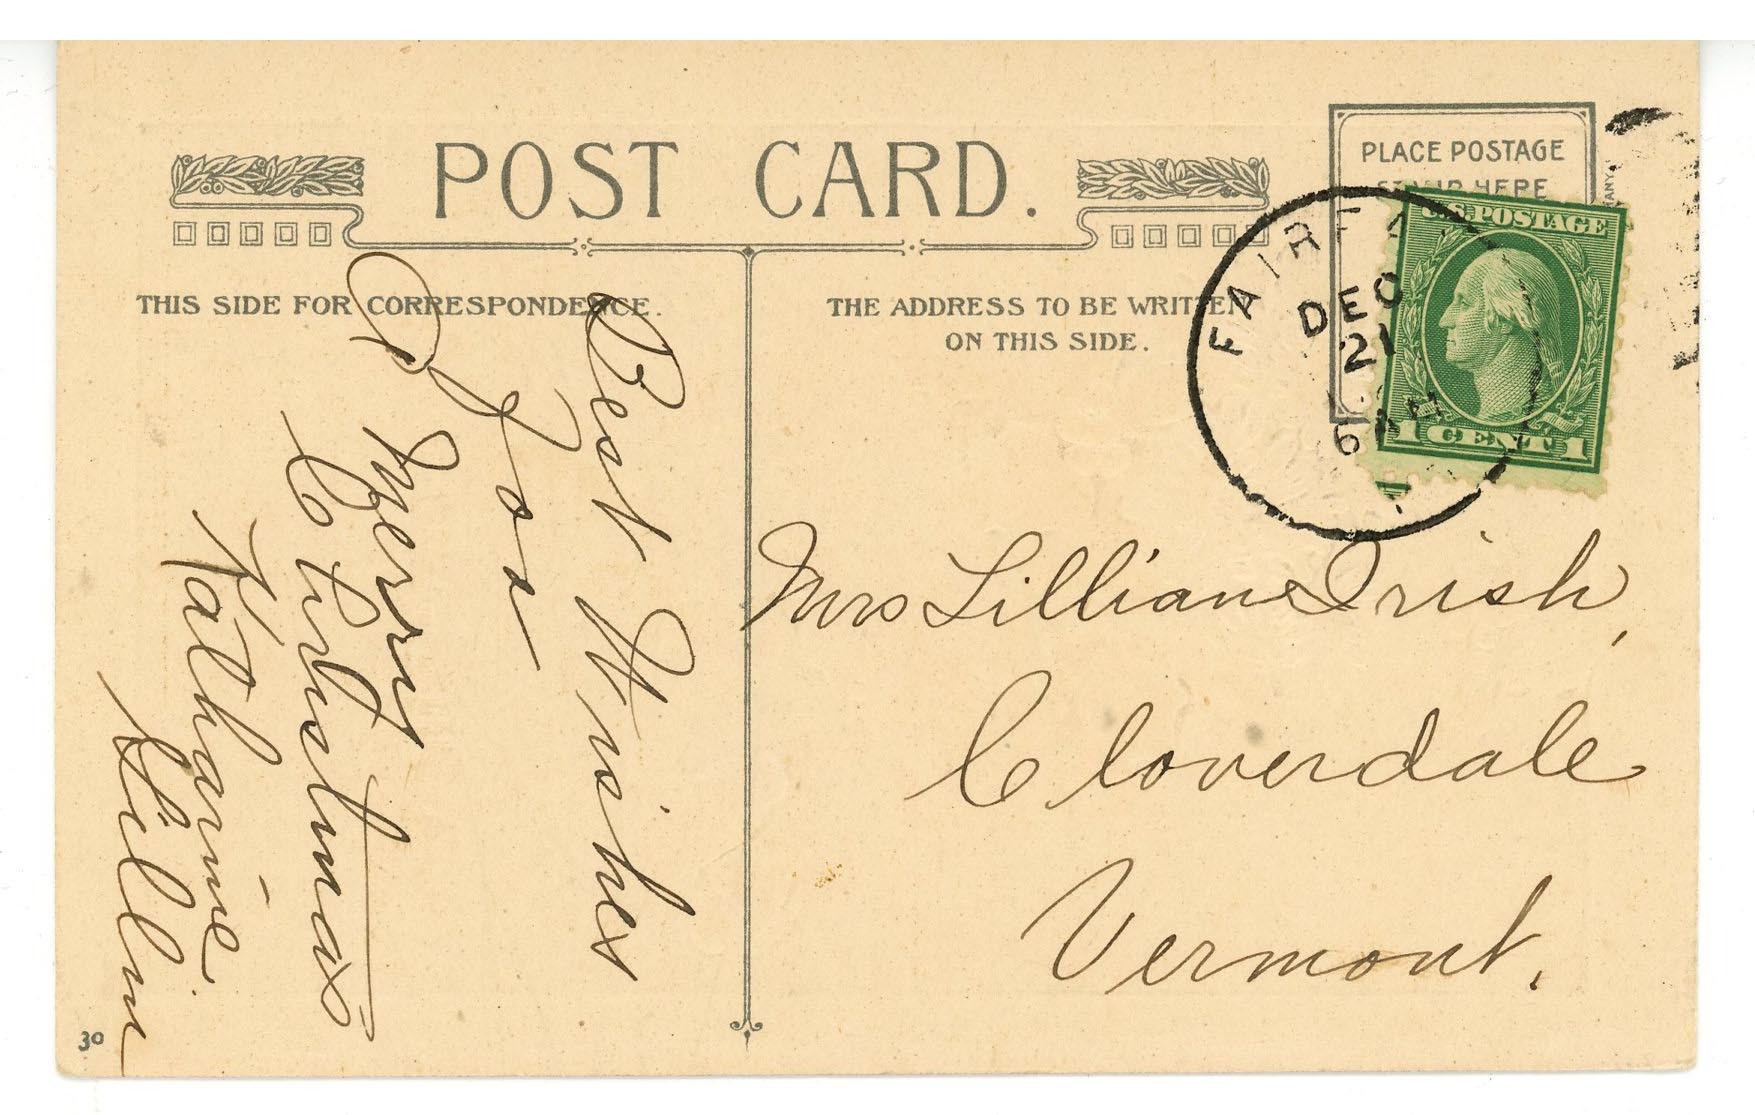 POST CARD.
THIS SIDE FOR CORRESPONDENCE.
THE ADDRESS TO BE WRITTEN
ON THIS SIDE.
PLACE POSTAGE
STAMP HERE
U.S. POSTAGE
1 CENT 1
DEC
21
6 AM
Best Wishes
for
A
Merry
Christmas
Katharine
Mrs Lillian Irish,
Cloverdale
Vermont.
30